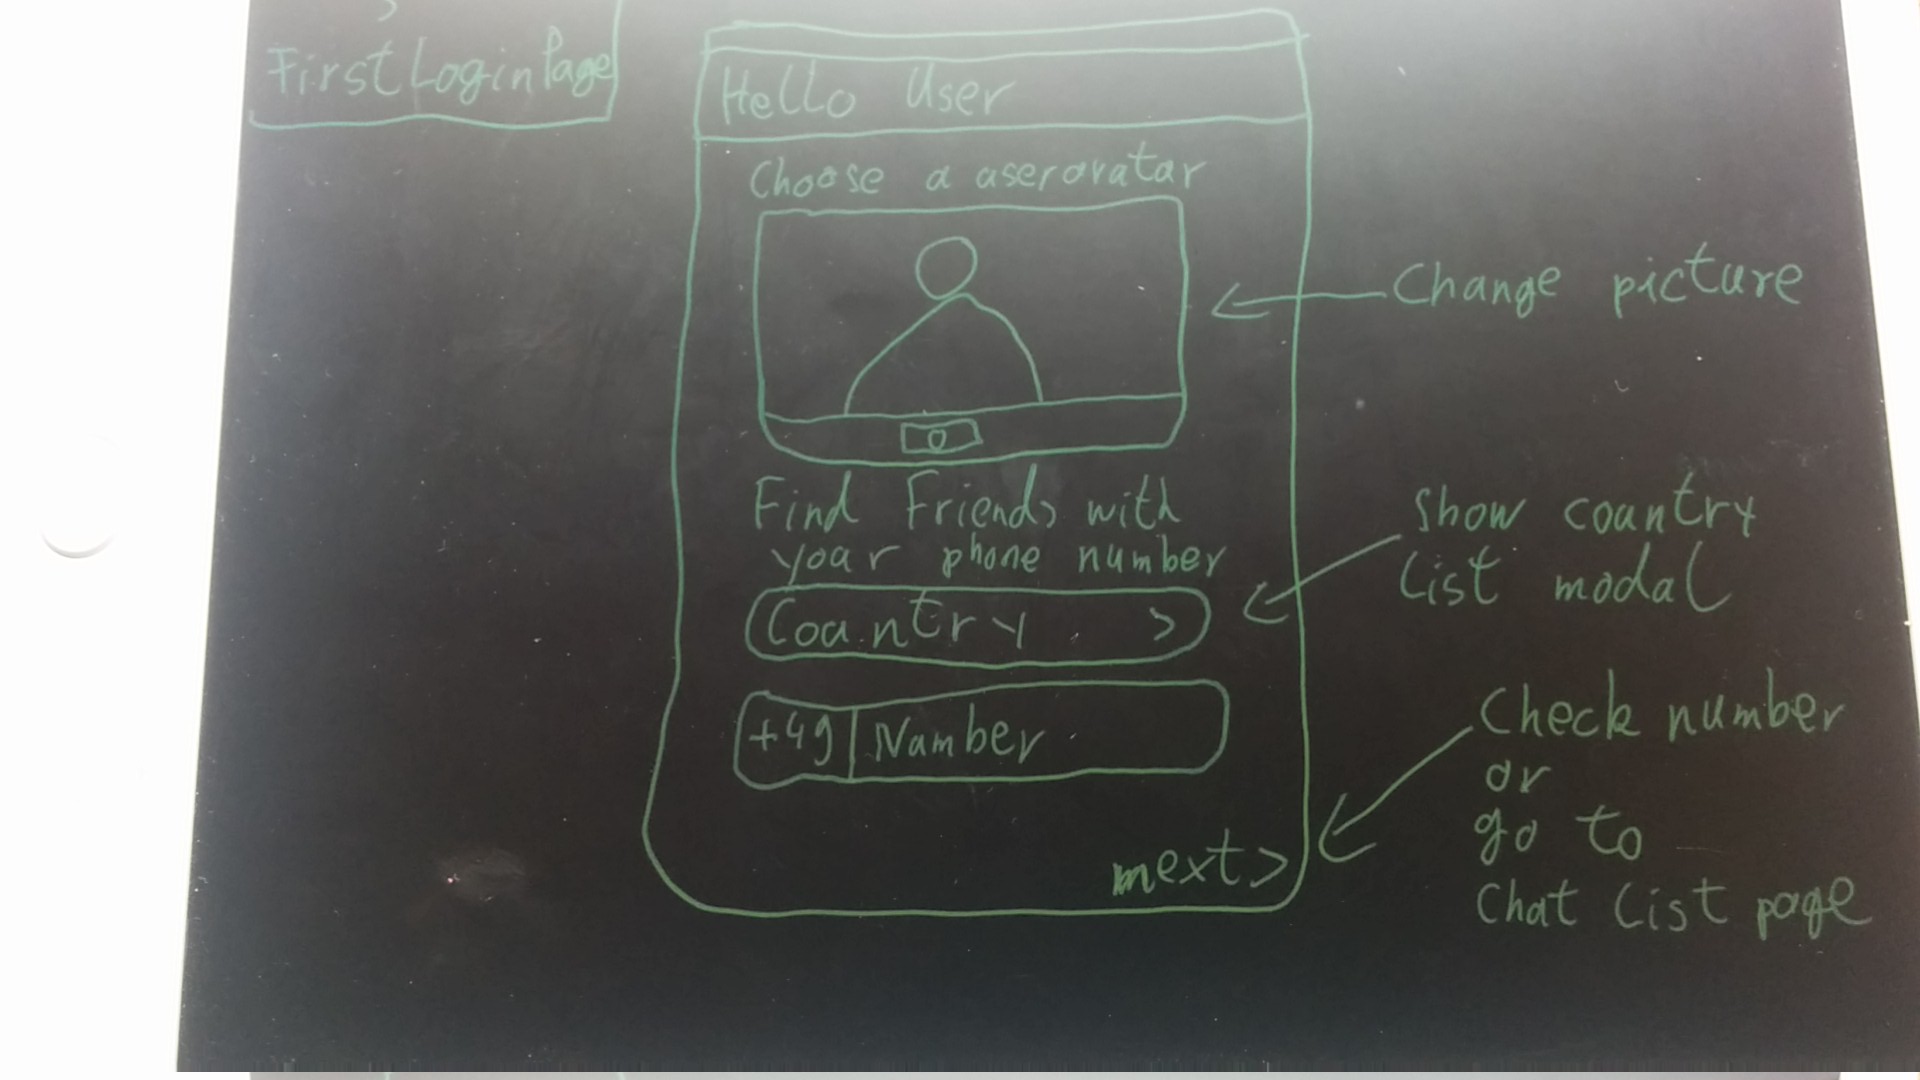 First Login Page
Hello User
Choose a useravatar
Change picture
Find Friends with
your phone number
Show country
list modal
Country >
+49 Number
Check number
or
go to
Chat list page
next >